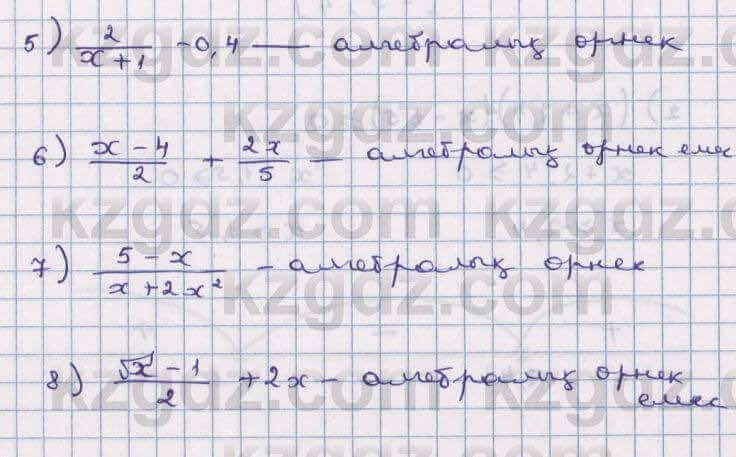 5) 2/(x+1) - 0,4 — алгебралық өрнек
kzgdz.com
6) (x-4)/2 + 2x/5 — алгебралық өрнек емес
kzgdz.com kzgdz.com
7) (5-x)/(x+2x²) - алгебралық өрнек
kzgdz.com
8) (√x-1)/2 + 2x - алгебралық өрнек
емес
kzgdz.com kzgdz.com